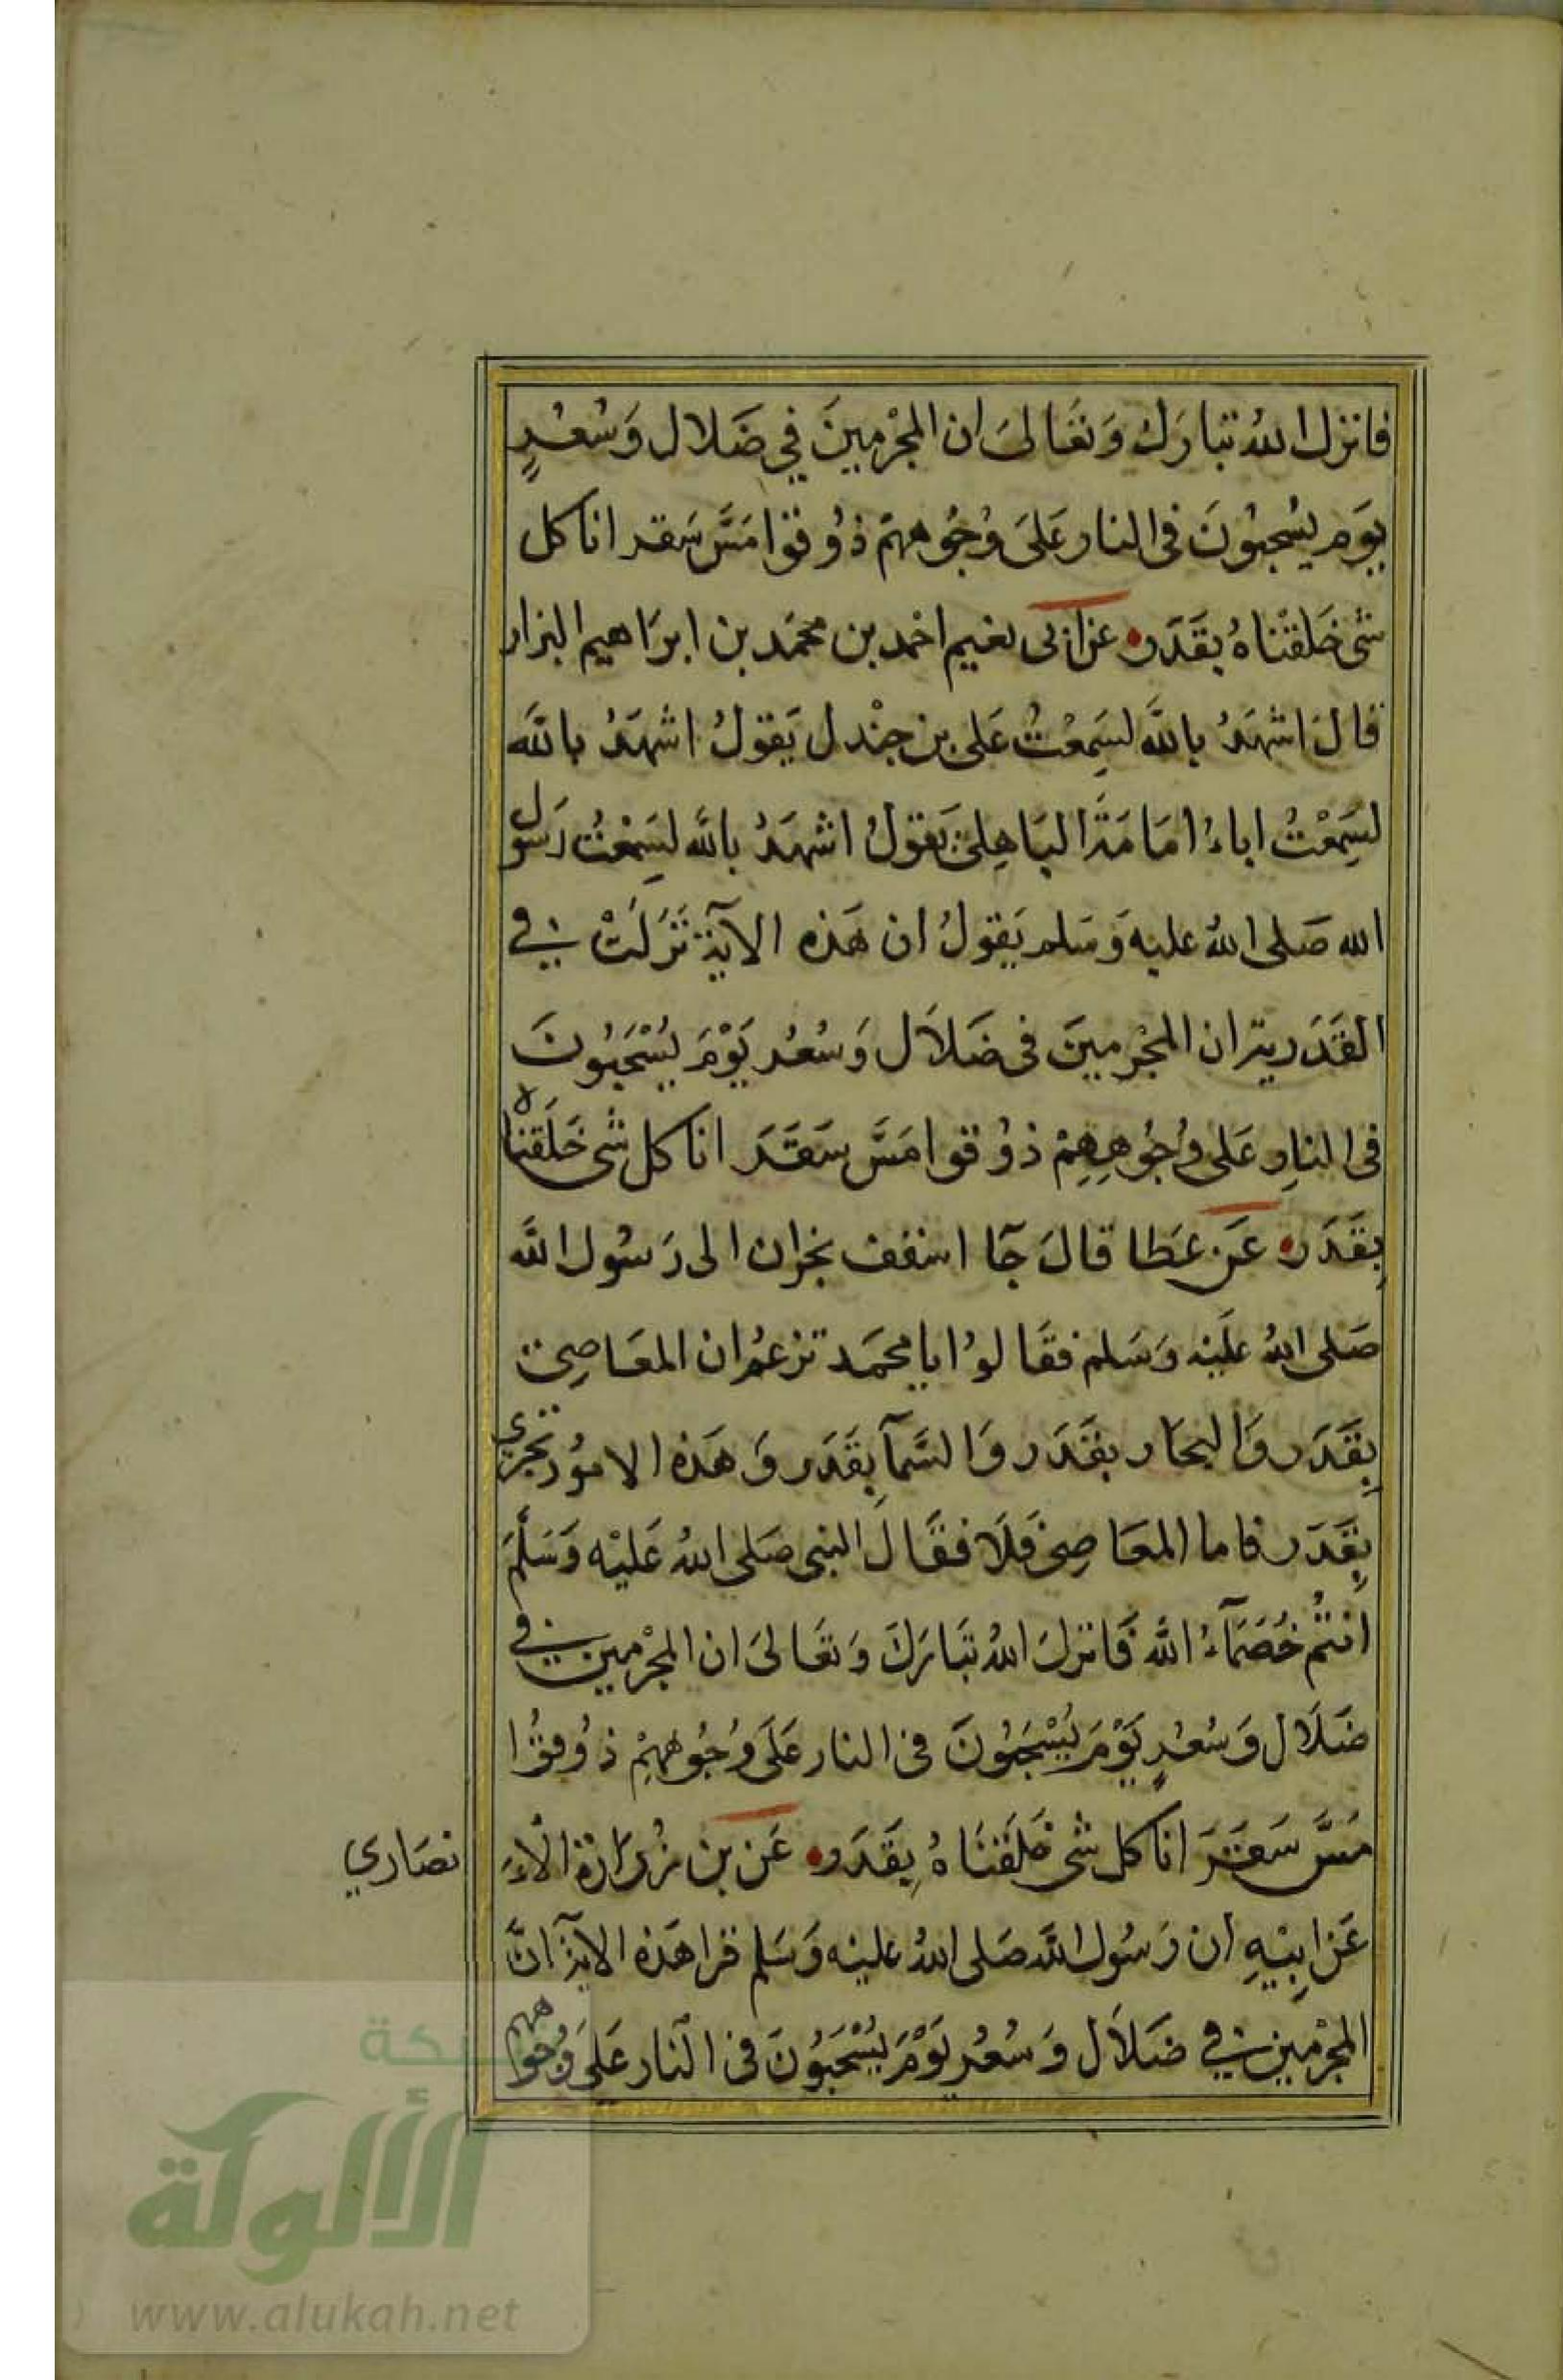 فانزل الله تبارَك وَتعَالىَ ان المجْرمينَ في ضَلال وَسُعُرٍ
يوَم يسُحبوُنَ فى النار عَلىَ وُجُوههمْ ذوُقوا مَسَّ سَقر انا كل
شئ خلقْناهُ بقَدَر عن ابى نعيم احمد بن محمّد بن ابرَاهيم البزار
قالَ اشهَدُ باللَّه لسَمِعْتُ عَلى بن جنْدل يَقولُ اشهَدُ باللَّه
لسَمِعْتُ اباءُ امَامَةَ البَاهِلىّ يَقولُ اشهَدُ باللَّه لسَمِعْتُ رَسُول
الله صَلى اللهُ عليه وَسَلم يَقولُ ان هَذه الآيَة نَزَلَتْ فى
القَدَرية ان المجْرمينَ فى ضَلاَل وَسُعُر يَوْمَ يُسْحَبُونَ
فى النارِ عَلى وُجُوهِهِمْ ذوُقوا مَسَّ سَقَرَ انا كل شئ خَلَقْناه
بِقَدَر عَن عَطا قالَ جَآ اسقف نجران الى رَسُول اللَّه
صَلى اللهُ عَليْه وَسَلم فقَالوُا يا محمَد تزعمُ ان المعَاصِى
بِقَدَر وَالبحَار بقَدَر وَالسَّمآ بِقَدَر وَهَذه الامُوُر تجرى
بِقَدَر فاما المعَاصِى فَلاَ فقَالَ النبى صَلى اللهُ عَليْه وَسَلَّمَ
انتُم خُصَمَآءُ اللَّه فَانزلَ اللهُ تبَارَكَ وَتعَالىَ ان المجْرمين فى
ضَلاَل وَسُعُرٍ يَوْمَ يُسْحَبُونَ فى النار عَلَى وُجُوههِمْ ذوُقوُا
مَسَّ سَقَرَ انا كل شئ خَلَقْنَاهُ بِقَدَر عَن بن زُرَارَة الاَ
نصَاري
عَن ابِيْهِ ان رَسُول اللَّه صَلى اللهُ عليْه وَسَلم قرا هَذه الايَة انَّ
المجْرْمين فى ضَلاَل وَسُعُر يَوْمَ يُسْحَبُوُنَ فى النَّار عَلىَ وُجُوههم
شبكة
الألوكة
www.alukah.net